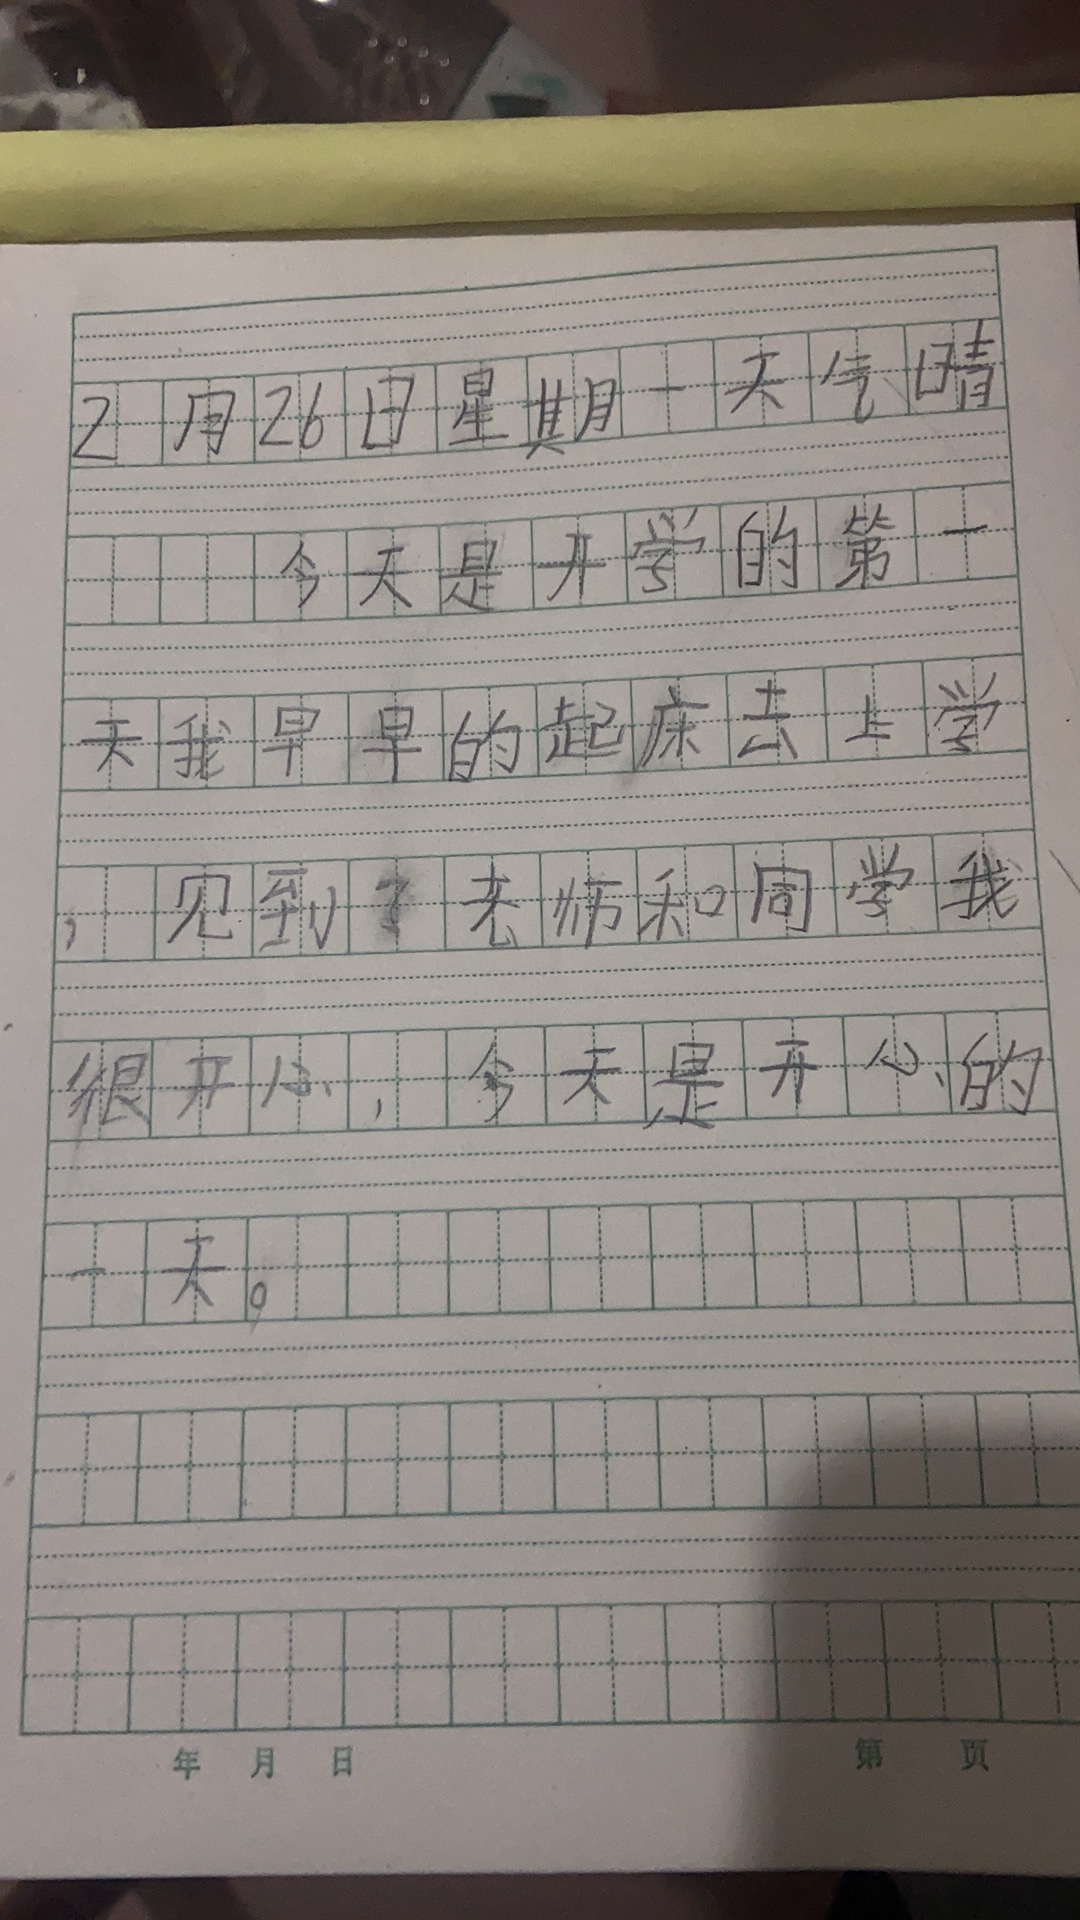 2月26日星期一天气晴
今天是开学的第一
天我早早的起床去上学
，见到了老师和同学我
很开心，今天是开心的
一天。
年 月 日 第 页